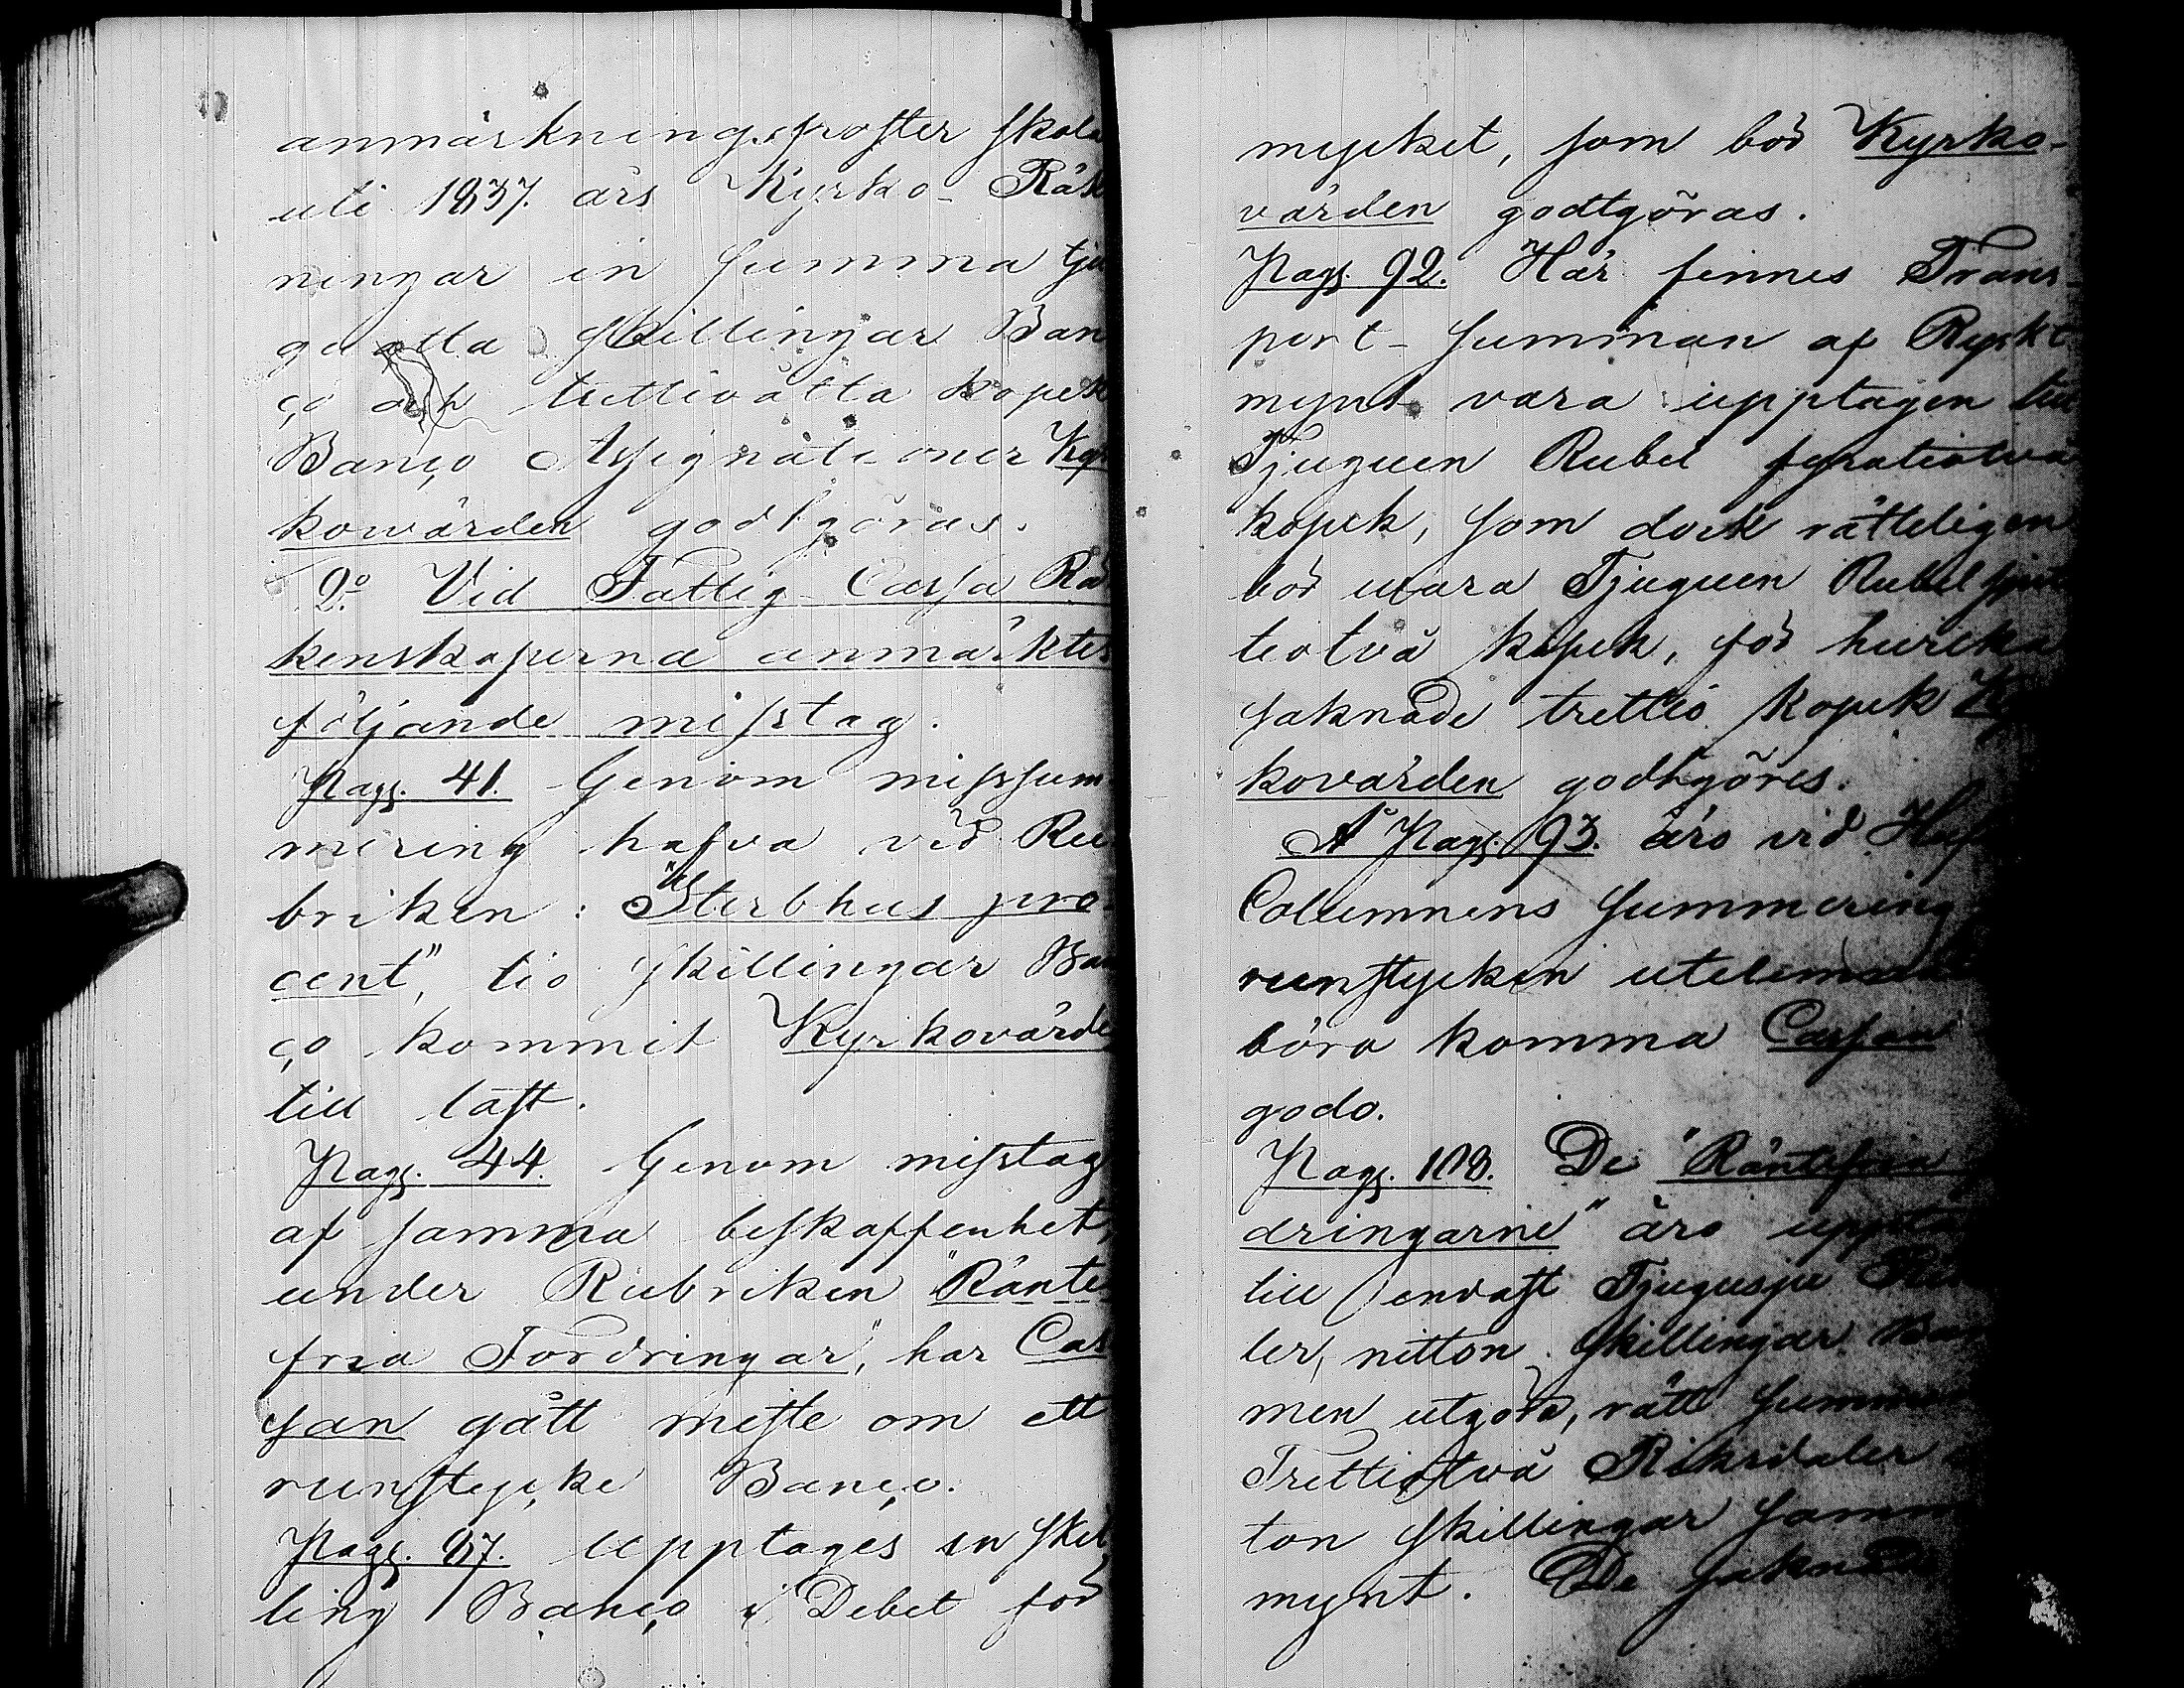 anmärkningsposter skola
uti 1837. års Kyrko-Räk
ningar in summa tju
guåtta skillingar Ban
ço och tuttioåtta kopek
Banço Assignationer Kyr
kowärden godtgöras.
2:o Vid Fattig-Cassa Rä
kenskaperna anmärktes
följande misstag.
Pag. 41. Genom missum
mering hafva vid Ru
briken: "Sterbhus pro-
cent", tio skillingar Ban
ço kommit Kyrkovärde
till last.
Pag. 44. Genom misstag
af samma beskaffenhet,
under Rubriken "Ränte-
fria Fordringar", har Cas
san gått miste om ett
runstycke Banço.
Pag. 87. Upptages en skil
ling Banço i Debet för
mycket, som bör Kyrko-
värden godtgöras.
Pag. 92. Här finnes Trans-
port-summan af Ryskt
mynt vara upptagen till
Tjuguen Rubel fyratiotvå
kopek, som dock rätteligen
bör wara Tjuguen Rubel sjut
tiotvå kopek, för hvilka
saknade trettio kopek Kyr
kovärden godtgöres.
Å Pag. 93. äro vid
Columnens summering
runstycken utelemnade
böra komma Cassan
godo.
Pag. 108. De "Räntefria
dringarne" äro uppta
till endast Tjugusju
ler, nitton skillingar Ban
men utgöra, rätt summe
Trettiotvå Riksdaler
ton skillingar samm
mynt. De saknade